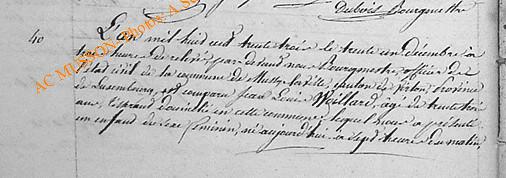 Dubois Bourgmestre
40
L'an mil huit cent trente trois le trente un décembre à
trois heures de relevée par devant nous Bourgmestre, officier de
l'état civil de la commune de Musson la ville, canton de Virton, province
de Luxembourg, est comparu Jean Louis Waillard, âgé de trente trois
ans, domicilié en cette commune, lequel nous a présenté
un enfant de sexe féminin, né aujourd'hui à sept heures du matin,
AC MUSSON Photos A S